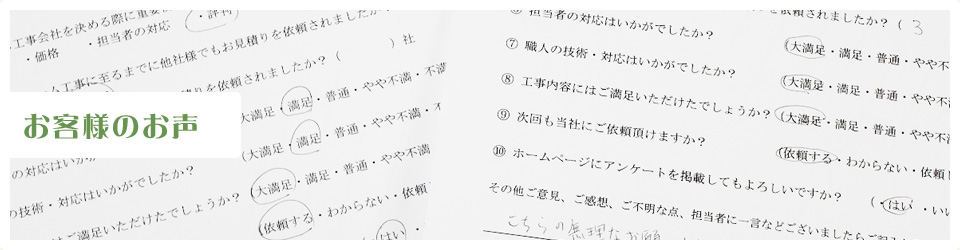 工事会社を決める際に重要
・価格 ・担当者の対応 ・評判
工事に至るまでに他社様でもお見積りを依頼されましたか？（ ）社
りを依頼されましたか？（
大満足・満足・普通・やや不満・不満
の対応はいかが
（大満足・満足・普通・やや不満
の技術・対応はいかがでしたか？
（大満足・満足・普通・やや不満
はご満足いただけたでしょうか？
（依頼する・わからない・依頼
・はい
お客様のお声
を依頼されましたか？（ 3
担当者の対応はいかがでしたか？
（大満足・満足・普通・やや不
⑦ 職人の技術・対応はいかがでしたか？
（大満足・満足・普通・やや不
⑧ 工事内容にはご満足いただけたでしょうか？
（大満足・満足・普通・やや不
⑨ 次回も当社にご依頼頂けますか？
（大満足・満足・普通・やや不
（依頼する・わからない・依頼
⑩ ホームページにアンケートを掲載してもよろしいですか？
（・はい ・いい
その他ご意見、ご感想、ご不明な点、担当者に一言などございましたらご記入
こちらの無理なお願